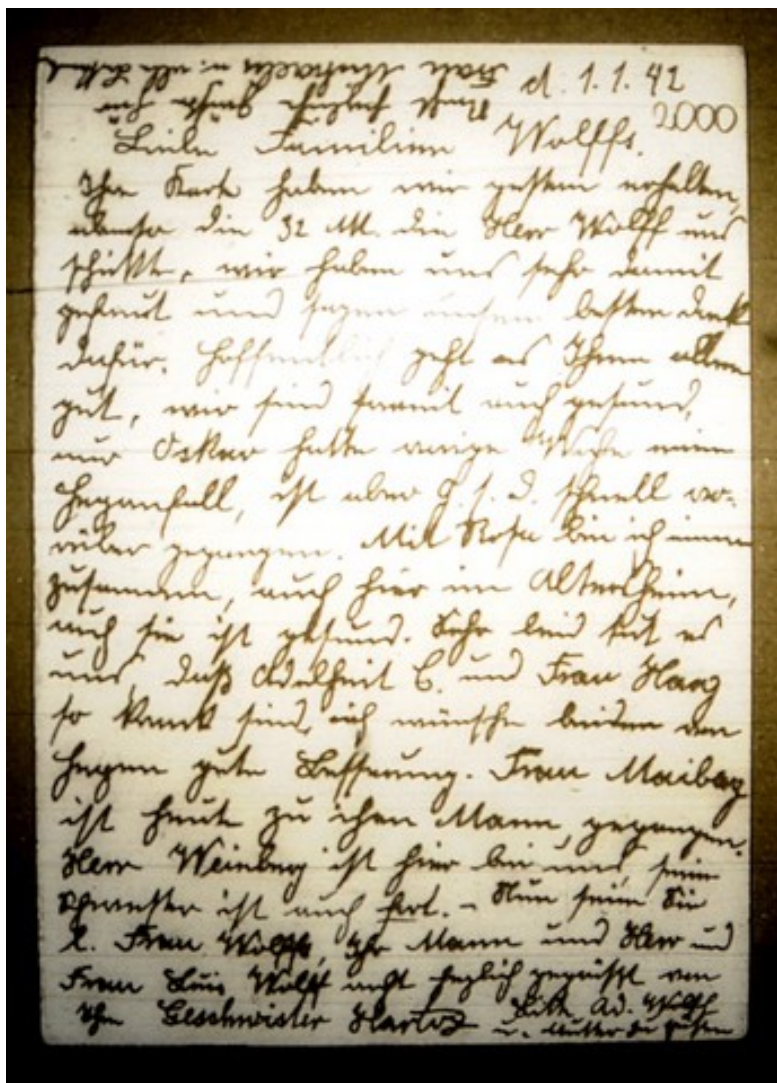 d. 1.1.42
2000
Liebe Familien Wolffs.
Ihre Karte haben wir gestern erhalten,
ebenso die 32 M. die Herr Wolff uns
schickte, wir haben uns sehr damit
gefreut und sagen unsern besten Dank
dafür. Hoffentlich geht es Ihnen allen
gut, wir sind soweit auch gesund,
nur Oskar hatte vorige Woche einen
Herzanfall, ist aber G. s. d. schnell vor-
über gegangen. Mit Rosa bin ich immer
zusammen, auch hier im Altersheim,
auch sie ist gesund. Sehr leid tut es
uns, daß Adelheit C. und Frau Harz
so krank sind, ich wünsche beiden von
Herzen gute Besserung. Frau Maibag
ist heute zu ihren Mann, gegangen.
Herr Weinberg ist hier bei uns, seine
Schwester ist auch fort. – Nun seien Sie
l. Frau Wolffs, Ihr Mann und Herr und
Frau Luis Wolff recht herzlich gegrüßt von
Ihre Geschwister Hartog Bitte Ad. Wolffs
u. Mutter zu grüßen
Noch herzliche Grüße an
Frau u. alle